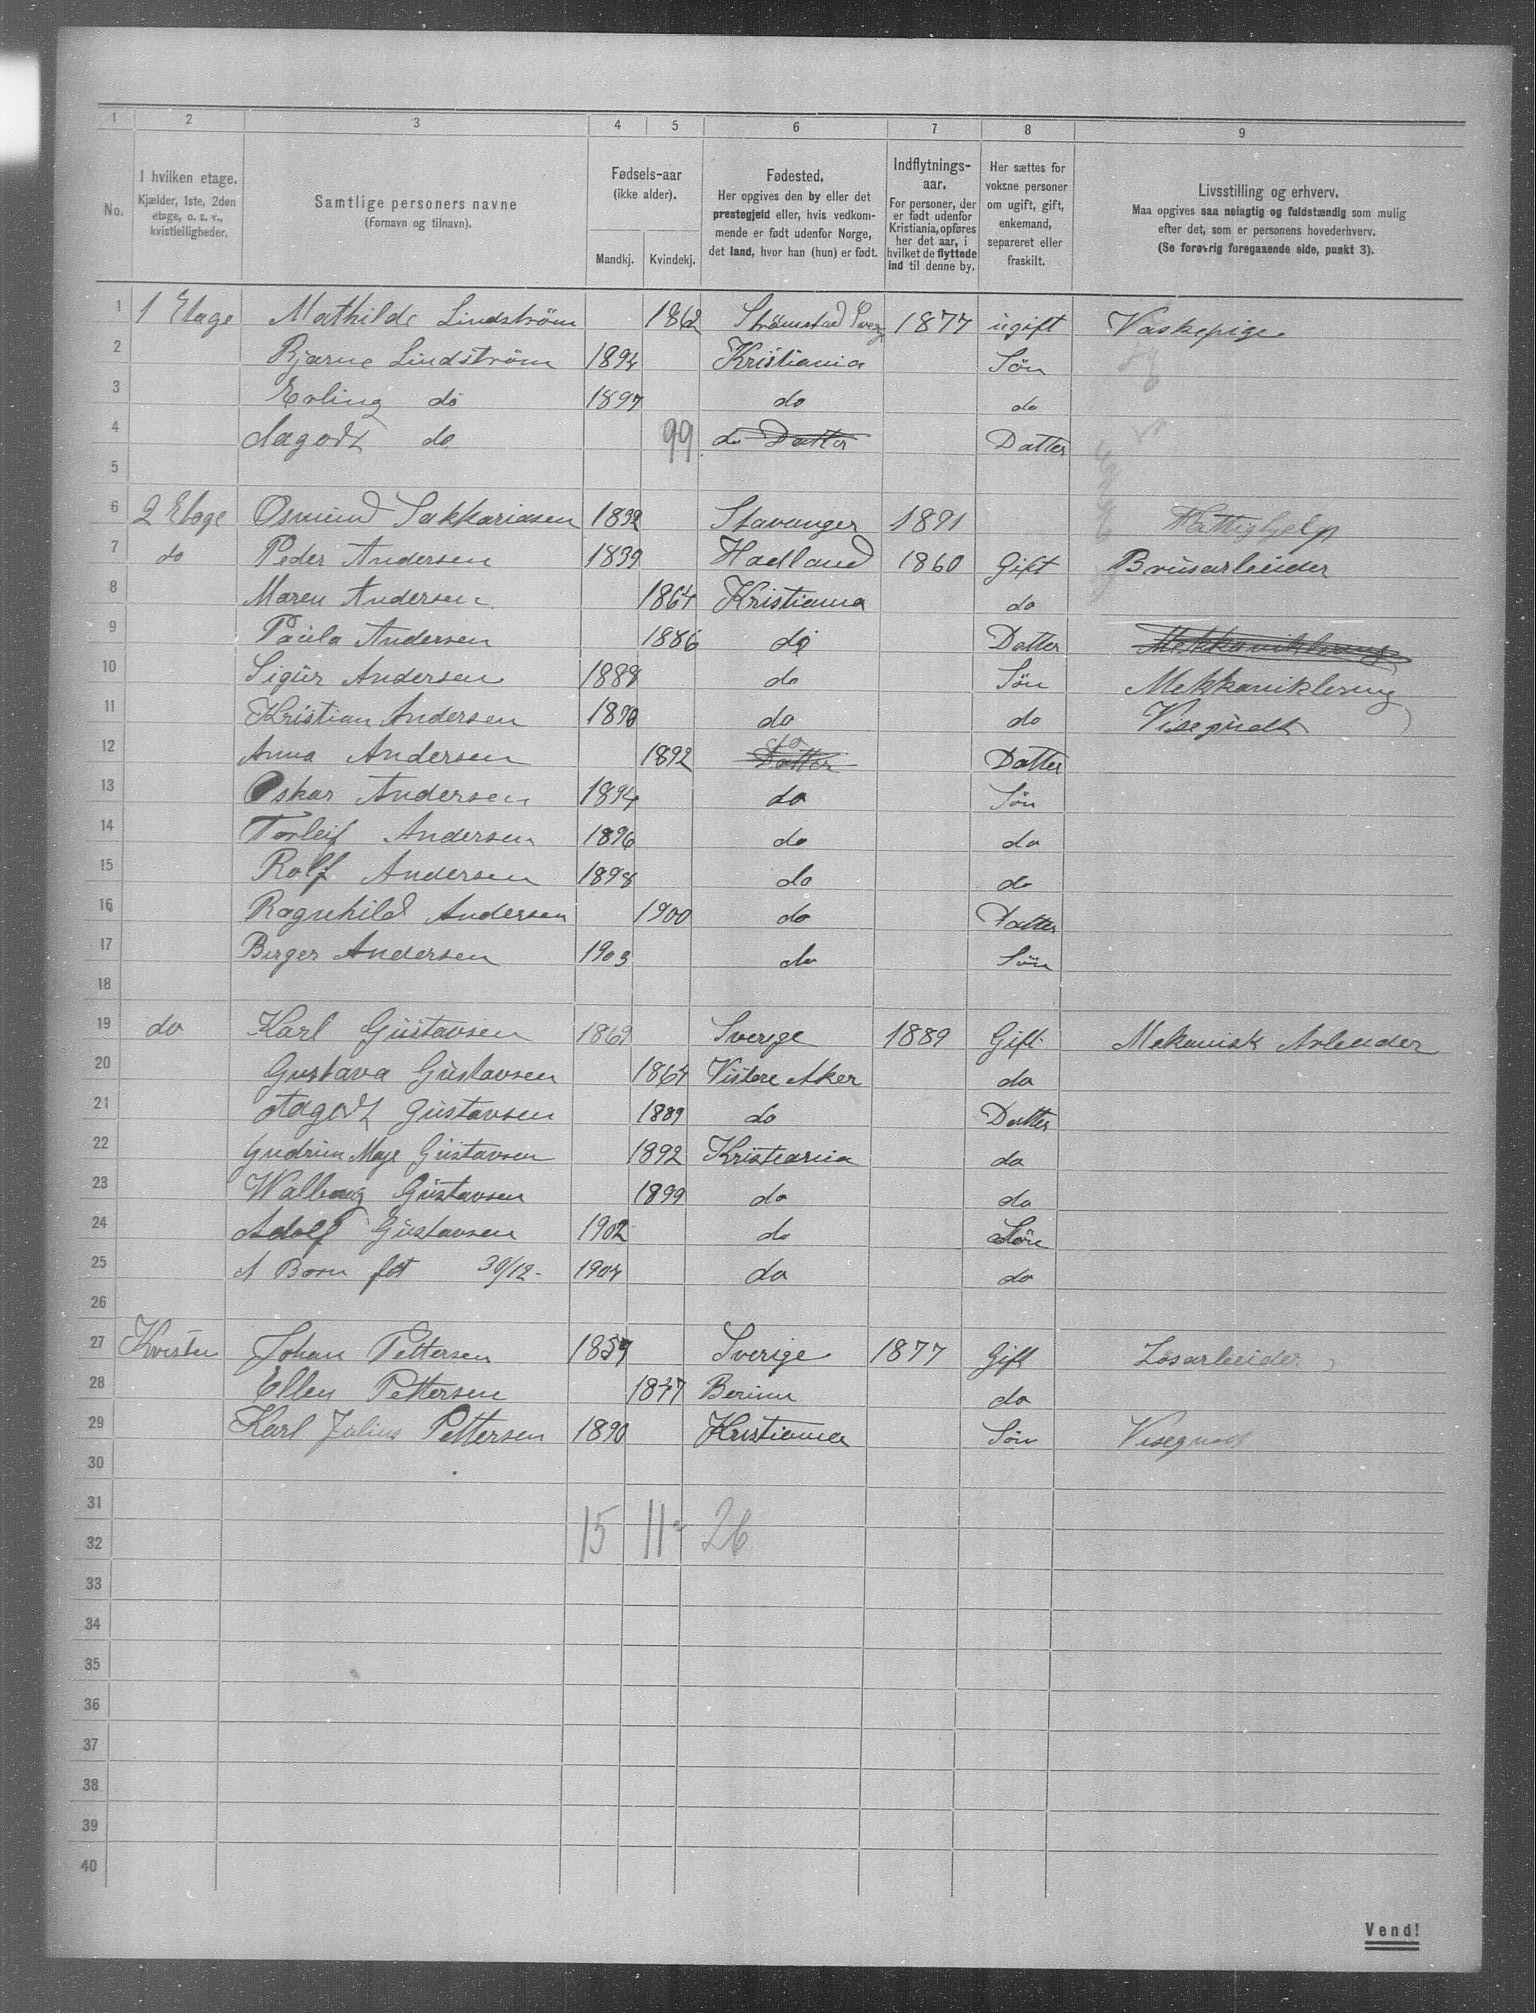 1 2 3 4 5 6 7 8 9
No. I hvilken etage. Kjælder, 1ste, 2den etage, o. s. v., kvistleiligheder. Samtlige personers navne (Fornavn og tilnavn). Fødsels-aar (ikke alder). Mandkj. Kvindekj. Fødested. Her opgives den by eller det prestegjeld eller, hvis vedkommende er født udenfor Norge, det land, hvor han (hun) er født. Indflytnings-aar. For personer, der er født udenfor Kristiania, opføres her det aar, i hvilket de flyttede ind til denne by. Her sættes for voksne personer om ugift, gift, enkemand, separeret eller fraskilt. Livsstilling og erhverv. Maa opgives saa nøiagtig og fuldstændig som mulig efter det, som er personens hovederhverv. (Se forøvrig foregaaende side, punkt 3).
1 1 Etage Mathilde Lindström 1862 Strømstad 1877 ugift Vaskepige
2 Bjarne Lindström 1894 Kristiania Søn
3 Erling do 1897 do do
4 Aagodt do 99 do Datter Datter
5
6 2 Etage Osmund Sakkariasen 1832 Stavanger 1891 Fattighjelp
7 do Peder Andersen 1839 Hadland 1860 Gift Brusarbeider
8 Maren Andersen 1864 Kristiania do
9 Paula Andersen 1886 do Datter
10 Sigur Andersen 1888 do Søn Mekkaniklering
11 Kristian Andersen 1890 do do Visegudt
12 Anna Andersen 1892 do Datter Datter
13 Oskar Andersen 1894 do Søn
14 Torleif Andersen 1896 do do
15 Rolf Andersen 1898 do do
16 Ragnhild Andersen 1900 do Datter
17 Birger Andersen 1903 do Søn
18
19 do Karl Gustavsen 1869 Sverige 1889 Gift Mekanisk Arbeider
20 Gustava Gustavsen 1864 Vistere Aker do
21 Aagodt Gustavsen 1889 do Datter
22 Gudrun Maje Gustavsen 1892 Kristiania do
23 Walborg Gustavsen 1899 do do
24 Adolf Gustavsen 1902 do Søn
25 A Barn føt 30/12- 1904 do do
26
27 Kvisten Johan Pettersen 1859 Sverige 1877 Gift Løsarbeider
28 Ellen Pettersen 1847 Berum do
29 Karl Julius Pettersen 1890 Kristiania Søn Visegudt
30
31
32 15 11 26
33
34
35
36
37
38
39
40
Vend!